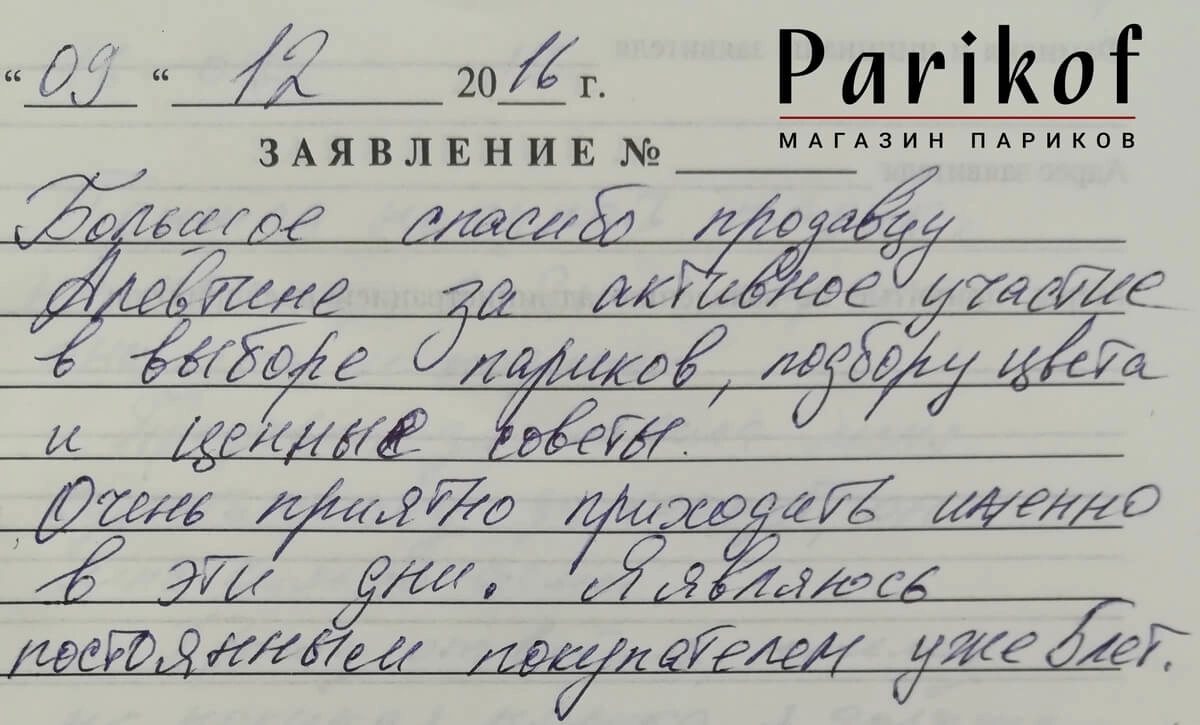 Parikof
МАГАЗИН ПАРИКОВ
"09 " 12 2016 г.
ЗАЯВЛЕНИЕ №
Большое спасибо продавцу
Алевтине за активное участие
в выборе париков, подбору цвета
и ценные советы.
Очень приятно приходить именно
в эти дни. Я являюсь
постоянным покупателем уже 5 лет.